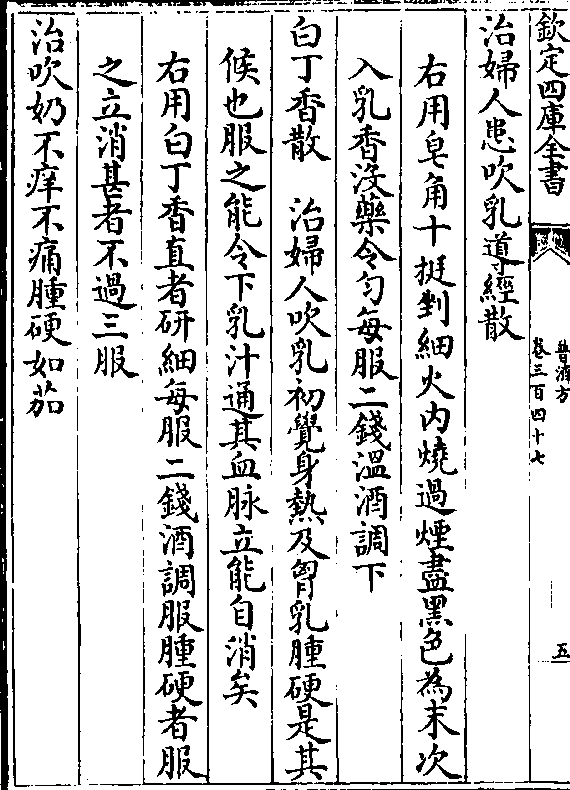 欽定四庫全書
普濟方
卷三百四十七
五
治婦人患吹乳導經散
右用皂角十挺剉細火内燒過煙盡黑色為末次
入乳香沒藥令勻每服二錢溫酒調下
白丁香散　治婦人吹乳初覺身熱及胷乳腫硬是其
候也服之能令下乳汁通其血脉立能自消矣
右用白丁香直者研細每服二錢酒調服腫硬者服
之立消甚者不過三服
治吹奶不痒不痛腫硬如茄